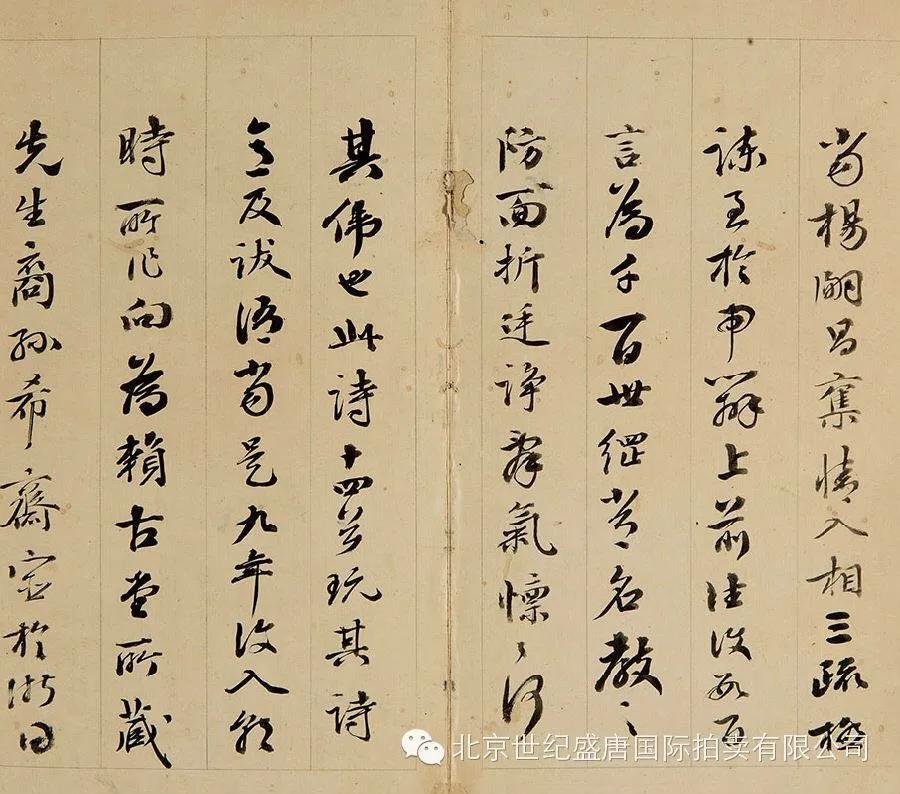 當楊嗣昌奪情入相三疏極
諫至於申辯上前往復數百
言為千百世綱常名教之
防面折廷諍辭氣懍〻何
其偉也此詩十四首玩其詩
意及跋語當是九年復入
時所作向為賴古堂所藏
先生裔孫希齋宦於浙日
北京世纪盛唐国际拍卖有限公司